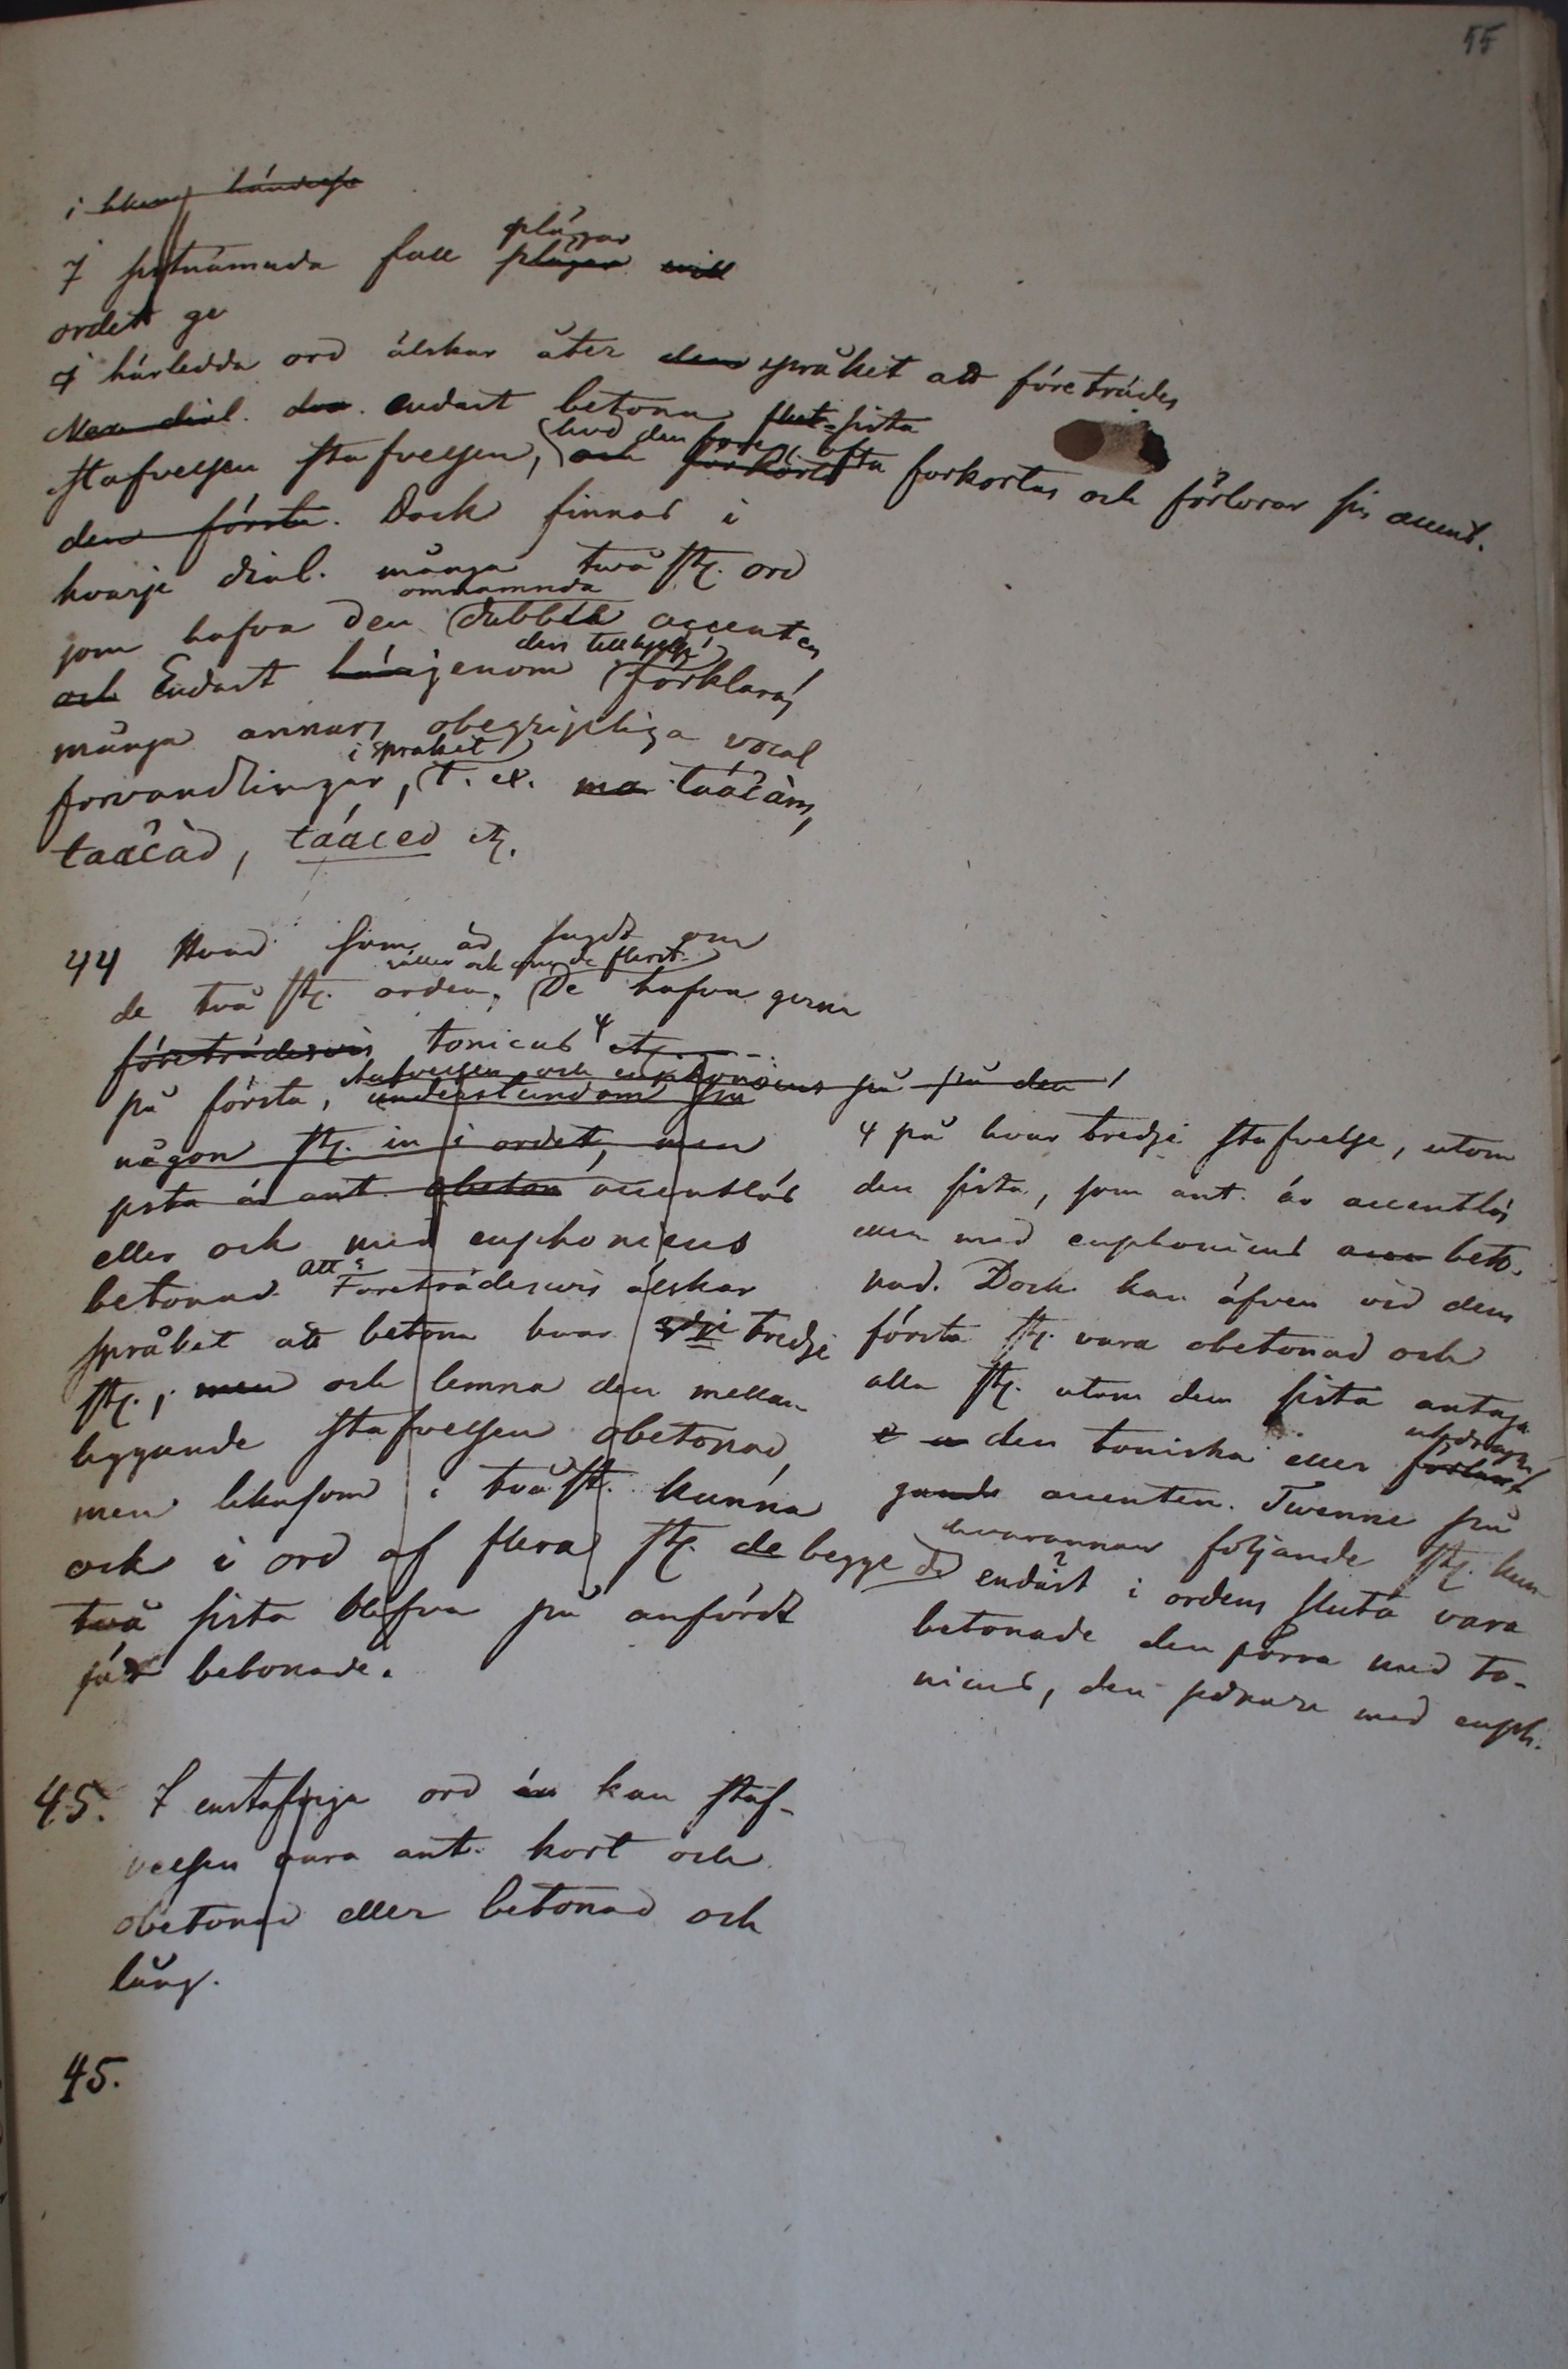 55
i händelse
I sistnämnda fall plägar plägar will
ordet ge
I härledda ord älskar åter den språket att företrädes
Max dial. dva. endast betona slut-sista
stafvelsen stafvelsen, hvad den förra ofta och förkort förkortas och förlorar sin accent.
den första. Dock finnas i
hvarje dial. många två st. ord
omnämnda
som hafva den dubbla accenten
dess tillhjelp
och Endast härigenom förklaras
många annars obegripliga vocal
i språket
forvandlingar, t. ex. ma taácàm,
taácàd, táaced etc.
44 Hvad som är sagdt om
gäller och om de flerst.
de två st. orden, De hafva gerna
företrädesvis tonicus 4 etc.
stafvelsen och euphonicus på på den
på första, understundom på
någon st. in i ordet, men
sista är ant. obeton accentlös
eller och med euphonicus
betonad. att Företrädesvis älskar
språket att betona hvar 3dje tredje
st.; men och lemna den mellan
liggande stafvelsen obetonad,
men likasom i två st. kunna
ock i ord af flera st. de begge de
två sista blifva på anfördt
sätt betonade.
4 på hvar tredje stafvelse, utom
den sista, som ant. är accentlös
eller med euphonicus acce beto-
nad. Dock kan äfven vid dem
första st. vara obetonad och
alla st. utom den sista antaga
den toniska eller förlän utdragna
gande accenten. Twenne på
hvarannan följande st. kun
endast i ordens sluta vara
betonade den förra med to-
nicus, den sednare med euph.
45. I enstafviga ord än kan staf-
velsen vara ant. kort och
obetonad eller betonad och
lång.
45.